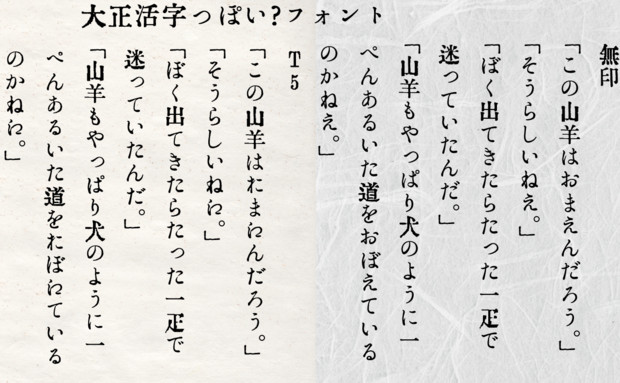 大正活字っぽい?フォント
無印
「この山羊はおまえんだろう。」
「そうらしいねえ。」
「ぼく出てきたらたった一疋で
迷っていたんだ。」
「山羊もやっぱり犬のように一
ぺんあるいた道をおぼえている
のかねえ。」
T5
「この山羊はおまえんだろう。」
「そうらしいねえ。」
「ぼく出てきたらたった一疋で
迷っていたんだ。」
「山羊もやっぱり犬のように一
ぺんあるいた道をおぼえている
のかねえ。」